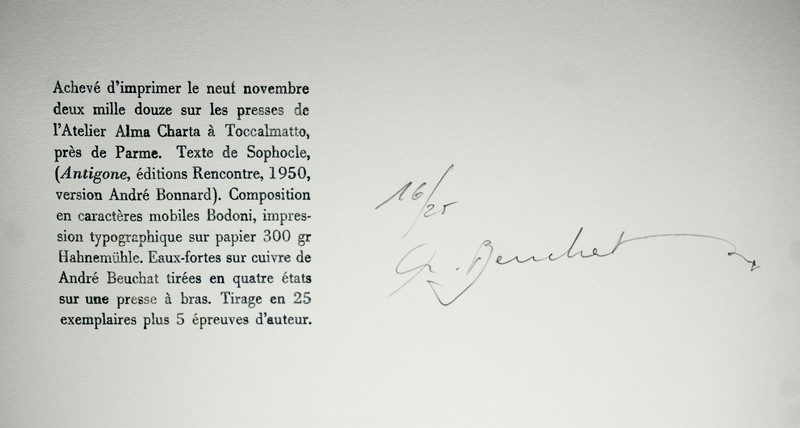 Achevé d'imprimer le neuf novembre
deux mille douze sur les presses de
l'Atelier Alma Charta à Toccalmatto,
près de Parme. Texte de Sophocle,
(Antigone, éditions Rencontre, 1950,
version André Bonnard). Composition
en caractères mobiles Bodoni, impres-
sion typographique sur papier 300 gr
Hahnemühle. Eaux-fortes sur cuivre de
André Beuchat tirées en quatre états
sur une presse à bras. Tirage en 25
exemplaires plus 5 épreuves d'auteur.
16/25
Beuchat